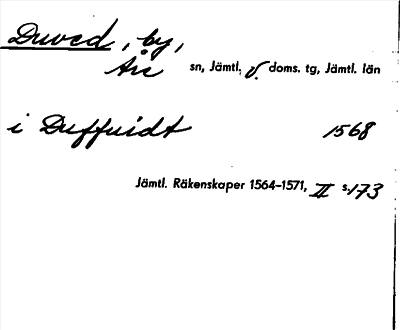 Duved, by,
Åre sn, Jämtl. v. doms. tg, Jämtl. län
i Duffuidt 1568
Jämtl. Räkenskaper 1564-1571, II s. 173